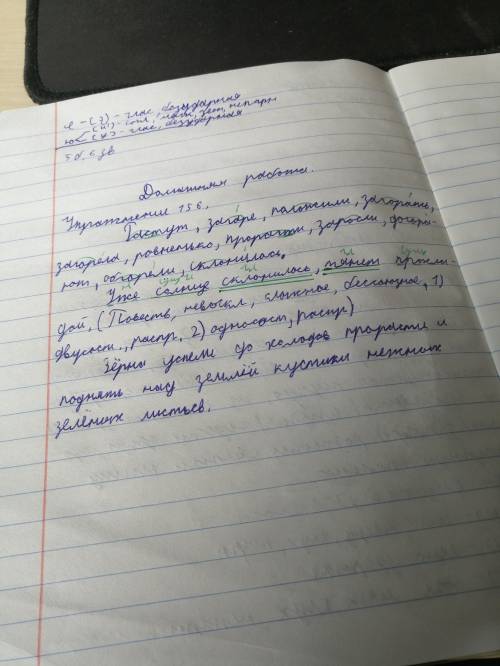 е - [э] - глас, безударная
ю < [й'] - согл, мягк, звон, непарн
[у] - глас, безударная
5 б, 6 зв
Домашняя работа.
Упражнение 156.
Растут, загаре, положили, загорать,
загорела, ровненько, заросли, догора-
ют, обгорели, склонилась.
Уже солнце склонилось, тянет прохла-
дой. (Повеств, невоскл, сложное, бессоюзное, 1)
двусост., распр, 2) односост, распр)
Зёрна успели до холодов прорасти и
поднять над землёй кустики нежных
зелёных листьев.